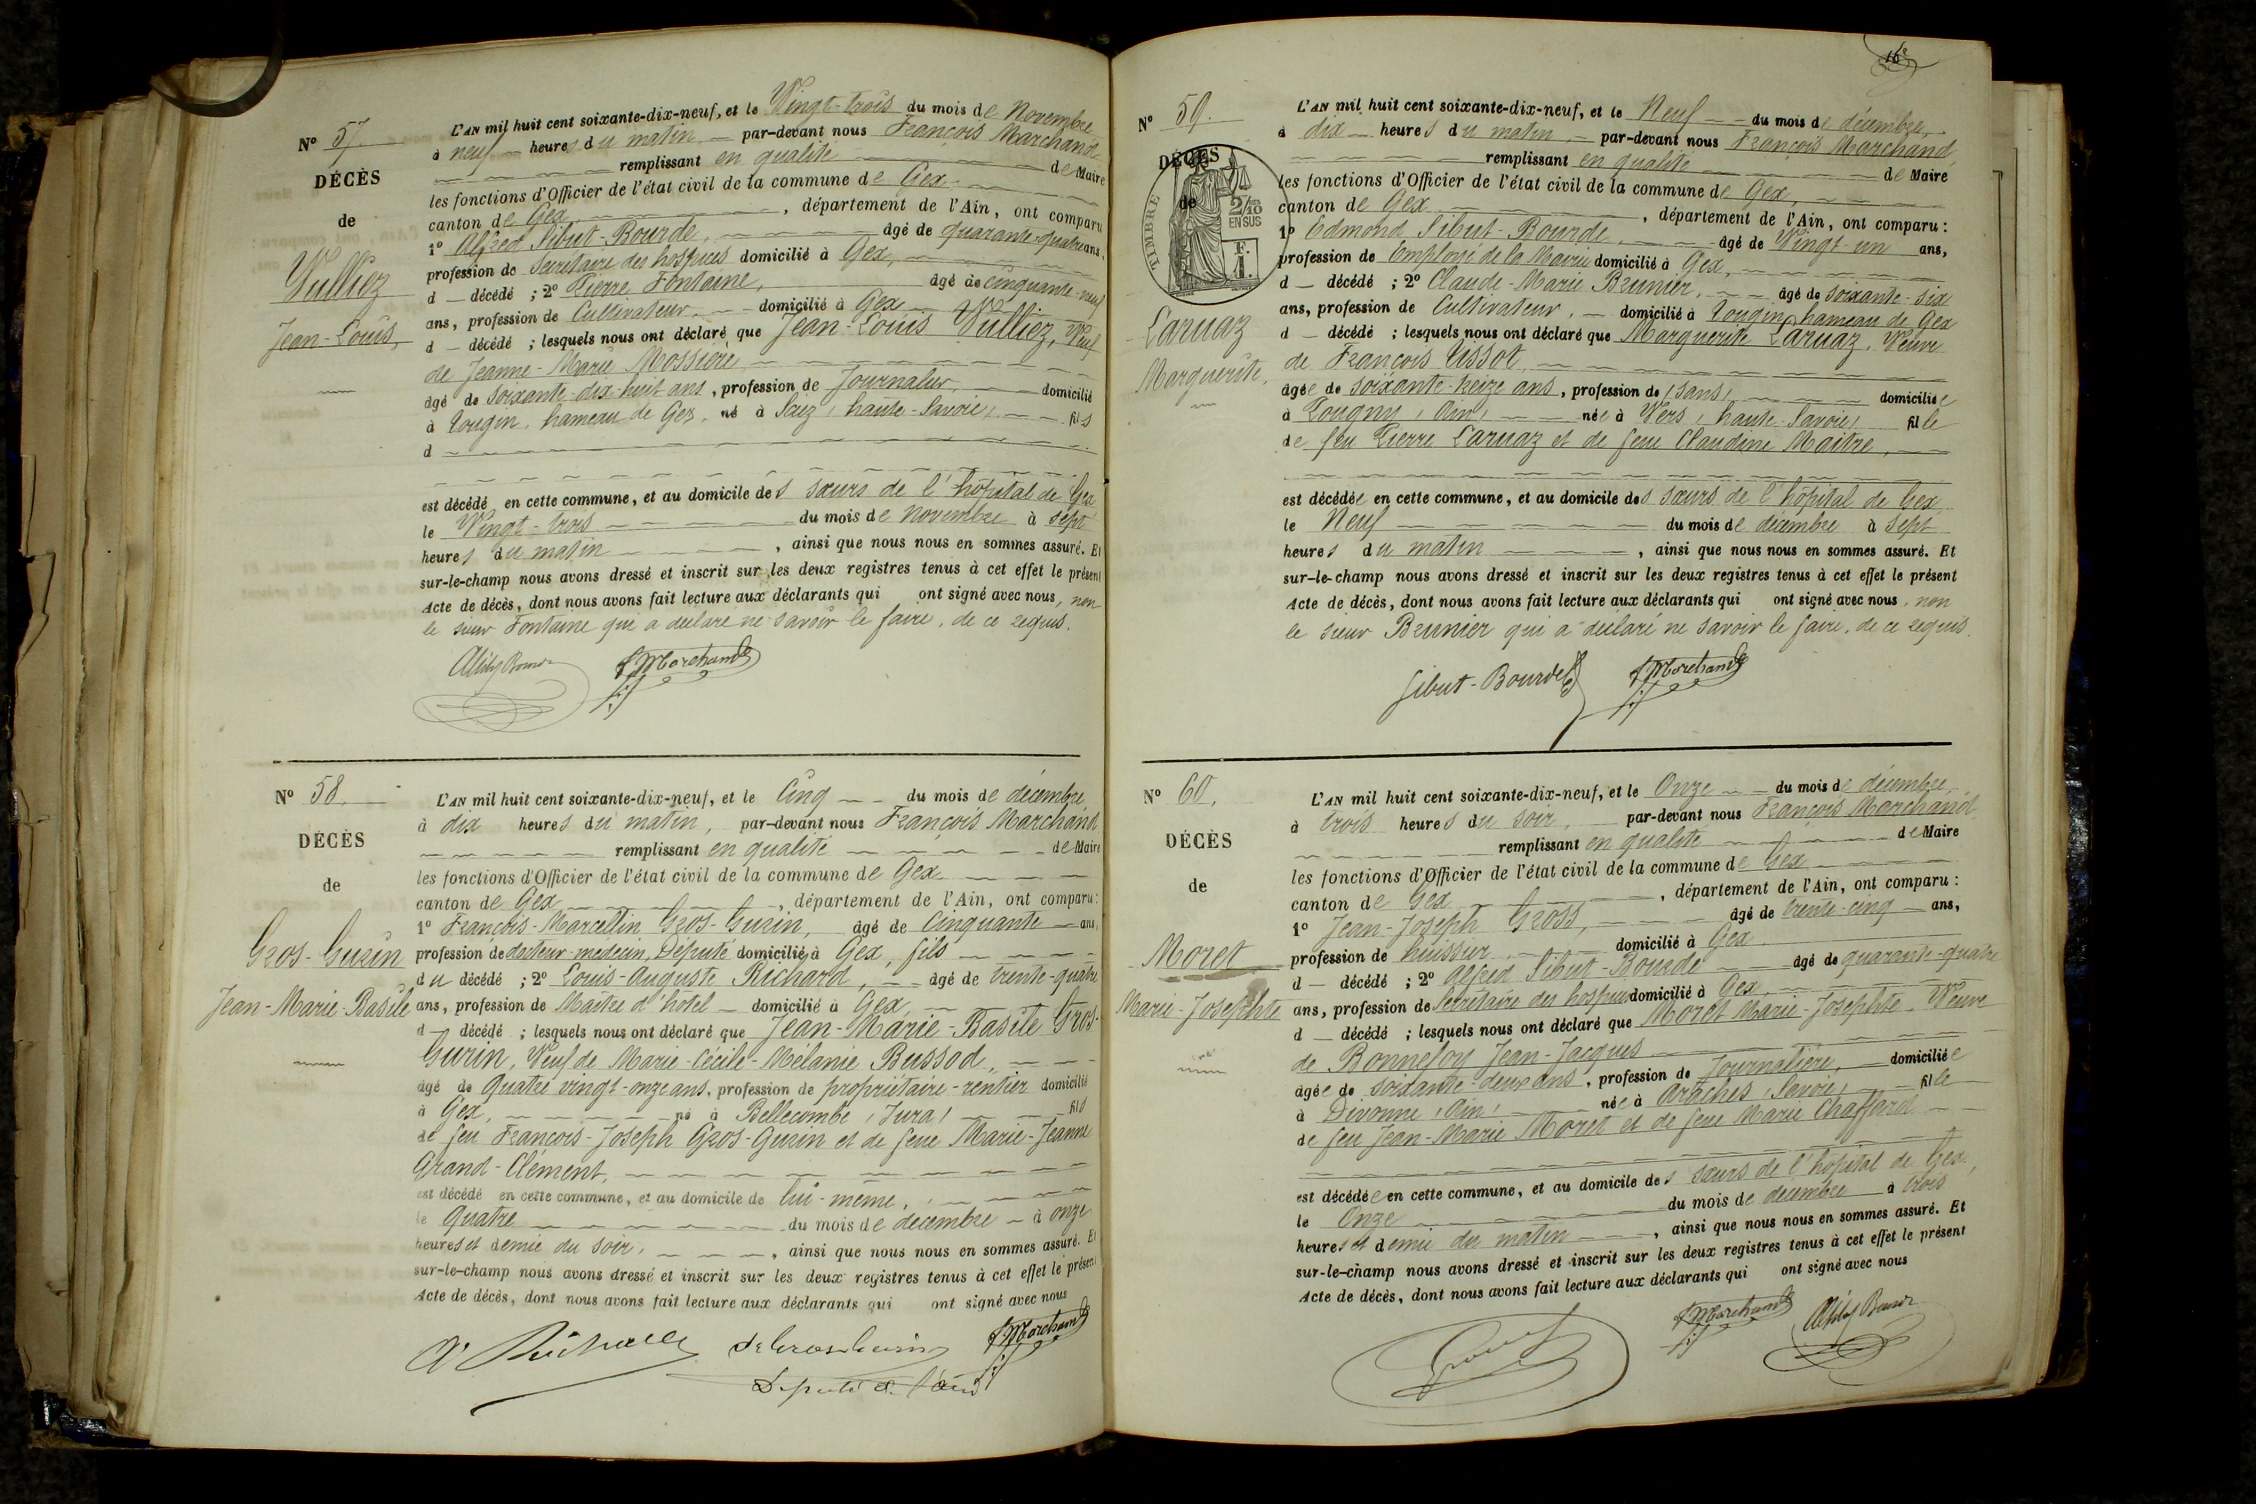 Nº 57
DÉCÈS
de
Vulliez
Jean-Louis,
L'AN mil huit cent soixante-dix-neuf, et le Vingt-trois du mois de Novembre
à neuf heures du matin par-devant nous François Marchand
remplissant en qualité de Maire
les fonctions d'Officier de l'état civil de la commune de Gex
canton de Gex, département de l'Ain, ont comparu
1º Alfred Sibut-Bourde, âgé de quarante-quatre ans,
profession de Secrétaire des hospices domicilié à Gex,
d décédé ; 2º Pierre Fontaine, âgé de cinquante-neuf
ans, profession de Cultivateur, domicilié à Gex
d décédé ; lesquels nous ont déclaré que Jean-Louis Vulliez, Veuf
de Jeanne-Marie Mossière,
âgé de soixante-dix-huit ans, profession de Journalier, domicilié
à Tougin, hameau de Gex, né à Sciez (haute-Savoie) fils
d
est décédé en cette commune, et au domicile des sœurs de l'hôpital de Gex
le Vingt-trois du mois de novembre à sept
heures du matin, ainsi que nous nous en sommes assuré. Et
sur-le-champ nous avons dressé et inscrit sur les deux registres tenus à cet effet le présent
Acte de décès, dont nous avons fait lecture aux déclarants qui ont signé avec nous, non
le sieur Fontaine qui a déclaré ne savoir le faire, de ce requis.
F Marchand
Nº 58.
DÉCÈS
de
Gros-Gurin
Jean-Marie-Basile
L'AN mil huit cent soixante-dix-neuf, et le Cinq du mois de décembre,
à dix heures du matin, par-devant nous François Marchand
remplissant en qualité de Maire
les fonctions d'Officier de l'état civil de la commune de Gex
canton de Gex, département de l'Ain, ont comparu :
1º François-Marcellin Gros-Gurin, âgé de Cinquante ans,
profession de docteur-médecin, Député domicilié à Gex, fils
du décédé ; 2º Louis-Auguste Richard, âgé de trente-quatre
ans, profession de Maître d'hôtel domicilié à Gex,
d décédé ; lesquels nous ont déclaré que Jean-Marie-Basile Gros-
Gurin, Veuf de Marie-Cécile-Mélanie Bussod,
âgé de Quatre vingt-onze ans, profession de propriétaire-rentier domicilié
à Gex, né à Bellecombe (Jura) fils
de feu François-Joseph Gros-Gurin et de feue Marie-Jeanne
Grand-Clément,
est décédé en cette commune, et au domicile de lui-même,
le Quatre du mois de décembre à onze
heures et demie du soir, ainsi que nous nous en sommes assuré. Et
sur-le-champ nous avons dressé et inscrit sur les deux registres tenus à cet effet le présent
Acte de décès, dont nous avons fait lecture aux déclarants qui ont signé avec nous
F Marchand
Député de l'ain
16e
Nº 59.
DÉCÈS
de
TIMBRE
2/10
EN SUS
F.
1.
Laruaz
Marguerite,
L'AN mil huit cent soixante-dix-neuf, et le Neuf du mois de décembre,
à dix heures du matin par-devant nous François Marchand
remplissant en qualité de Maire
les fonctions d'Officier de l'état civil de la commune de Gex,
canton de Gex, département de l'Ain, ont comparu :
1º Edmond Sibut-Bourde, âgé de Vingt-un ans,
profession de Employé de la Mairie domicilié à Gex,
d décédé ; 2º Claude-Marie Brunier, âgé de soixante-six
ans, profession de Cultivateur, domicilié à Tougin, hameau de Gex
d décédé ; lesquels nous ont déclaré que Marguerite Laruaz, Veuve
de François Tissot
âgée de soixante-treize ans, profession de (sans) domiciliée
à Pougny (Ain) née à Vers (haute-Savoie) fille
de feu Pierre Laruaz et de feue Claudine Maître,
est décédée en cette commune, et au domicile des sœurs de l'hôpital de Gex
le Neuf du mois de décembre à sept
heures du matin, ainsi que nous nous en sommes assuré. Et
sur-le-champ nous avons dressé et inscrit sur les deux registres tenus à cet effet le présent
Acte de décès, dont nous avons fait lecture aux déclarants qui ont signé avec nous, non
le sieur Brunier qui a déclaré ne savoir le faire, de ce requis.
Sibut-Bourde F Marchand
Nº 60.
DÉCÈS
de
Moret
Marie-Josephte
L'AN mil huit cent soixante-dix-neuf, et le Onze du mois de décembre,
à trois heures du soir, par-devant nous François Marchand
remplissant en qualité de Maire
les fonctions d'Officier de l'état civil de la commune de Gex
canton de Gex, département de l'Ain, ont comparu :
1º Jean-Joseph Gross, âgé de trente-cinq ans,
profession de huissier domicilié à Gex
d décédé ; 2º Alfred Sibut-Bourde âgé de quarante-quatre
ans, profession de Secrétaire des hospices domicilié à Gex,
d décédé ; lesquels nous ont déclaré que Moret Marie-Josephte, Veuve
de Bonnefoy Jean-Jacques
âgée de soixante-deux ans, profession de Journalière, domiciliée
à Divonne (Ain) née à Arâches (Savoie) fille
de feu Jean-Marie Moret et de feue Marie Chaffard
est décédée en cette commune, et au domicile des sœurs de l'hôpital de Gex,
le Onze du mois de décembre à trois
heures et demie du matin, ainsi que nous nous en sommes assuré. Et
sur-le-champ nous avons dressé et inscrit sur les deux registres tenus à cet effet le présent
Acte de décès, dont nous avons fait lecture aux déclarants qui ont signé avec nous
F Marchand